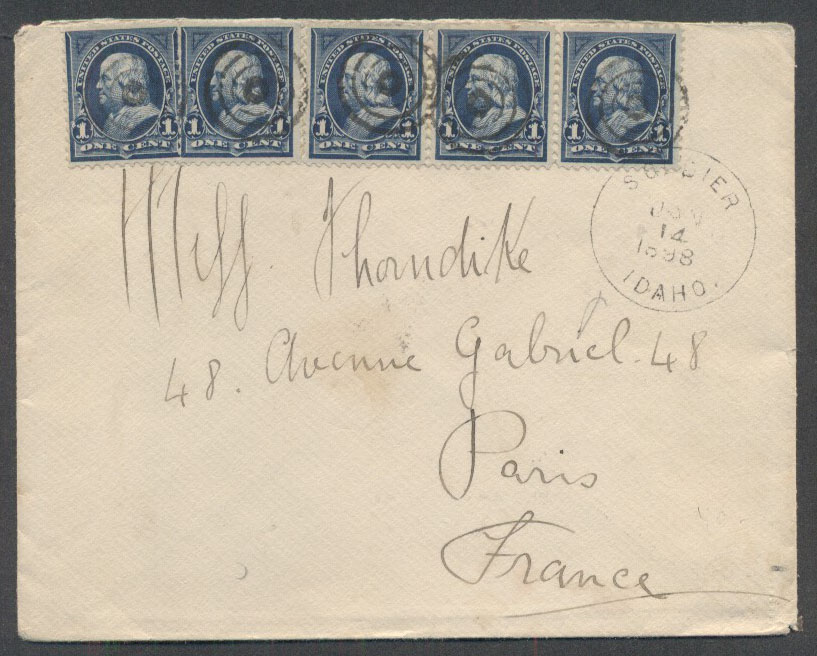 UNITED STATES POSTAGE UNITED STATES POSTAGE UNITED STATES POSTAGE UNITED STATES POSTAGE UNITED STATES POSTAGE
1 1 1 1 1 1 1 1 1 1
ONE CENT ONE CENT ONE CENT ONE CENT ONE CENT
SOLDIER
14
1898
IDAHO.
Thorndike
48. Avenue Gabriel. 48
Paris
France